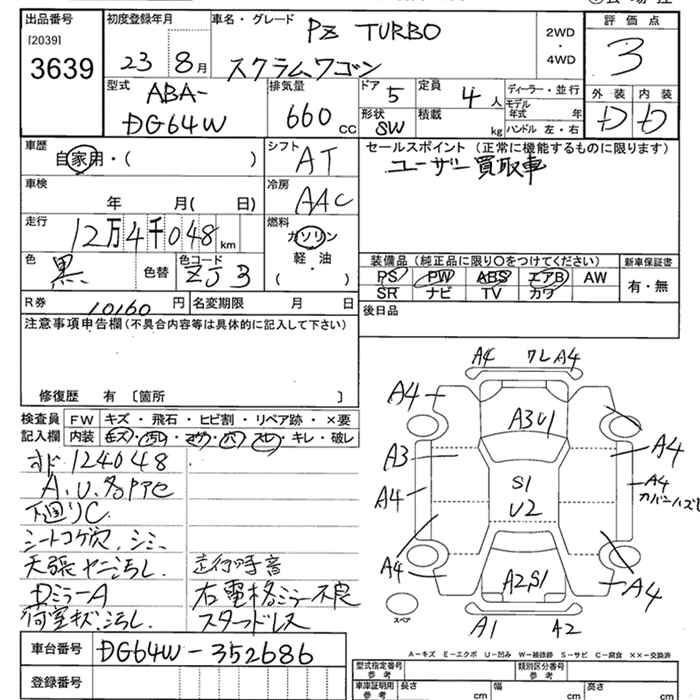 出品番号
[2039]
3639
初度登録年月
23 8月
車名・グレード
PZ TURBO
スクラムワゴン
2WD
・
4WD
評価点
3
外装 内装
D D
型式
ABA-
DG64W
排気量
660 cc
ドア
5
定員
4 人
形状
SW
積載
kg
ディーラー・並行
モデル年式 年
ハンドル 左・右
車歴
自家用・( )
シフト
AT
車検
年 月( 日)
冷房
AAC
走行
12万4千048 km
燃料
ガソリン
軽・油
( )
色
黒
色替
色コード
ZJ3
R券
10160 円
名変期限 月 日
セールスポイント (正常に機能するものに限ります)
ユーザー買取車
装備品 (純正品に限り〇をつけてください)
PS PW ABS エアB AW
SR ナビ TV カワ
新車保証書
有・無
後日品
注意事項申告欄 (不具合内容等は具体的に記入して下さい)
修復歴 有 〔箇所 〕
検査員記入欄
FW キズ・飛石・ヒビ割・リペア跡・×要
内装 キズ・汚れ・コゲ・穴・スレ・キレ・破レ
オド 124048
A.U.各Pアセ
下廻りC
シートコゲ穴、シミ、
天張ヤニ汚レ.
DミラーA
荷室キズ汚レ.
走行時音
右電格ミラー不良
スタッドレス
A4 ワレ A4
A4
A3U1
A3
A4
A4
A4
カバーハズレ
S1
U2
A4
A2S1
A4
A1
A2
スペア
A-キズ E-エクボ U-凹み W-補修跡 S-サビ C-腐食 ××-交換済
車台番号
DG64W-352686
登録番号
型式指定番号
参考
類別区分番号
参考
車庫証明用
参考
長さ cm
幅 cm
高さ cm